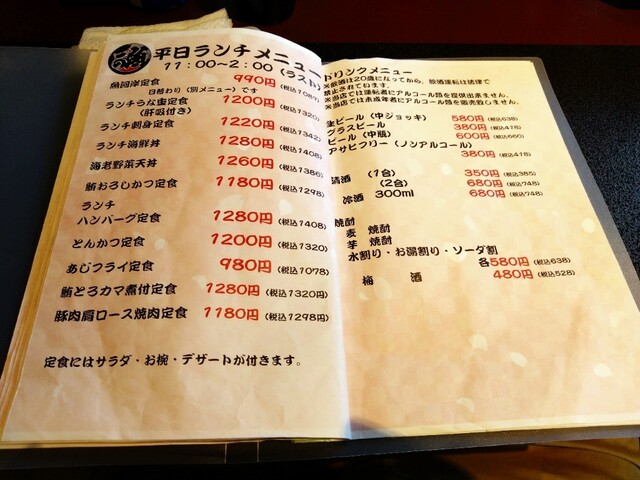 平日ランチメニュー
11:00~2:00(ラスト)
魚河岸定食 990円(税込1089)
日替わり(別メニュー)です
ランチうな重定食 1200円(税込1320)
(肝吸付き)
ランチ刺身定食 1220円(税込1342)
ランチ海鮮丼 1280円(税込1408)
海老野菜天丼 1260円(税込1386)
鮪おろしかつ定食 1180円(税込1298)
ランチ
ハンバーグ定食 1280円(税込1408)
とんかつ定食 1200円(税込1320)
あじフライ定食 980円(税込1078)
鮪とろカマ煮付定食 1280円(税込1320円)
豚肉肩ロース焼肉定食 1180円(税込1298円)
定食にはサラダ・お椀・デザートが付きます。
ドリンクメニュー
※飲酒は20歳になってから。飲酒運転は法律で
禁止されています。
※当店では運転者にアルコール類を提供出来ません。
※当店では未成年者にアルコール類を販売致しません。
生ビール(中ジョッキ) 580円(税込638)
グラスビール 380円(税込418)
ビール(中瓶) 600円(税込660)
アサヒフリー(ノンアルコール)
380円(税込418)
清酒 (1合) 350円(税込385)
(2合) 680円(税込748)
冷酒 300ml 680円(税込748)
焼酎
麦 焼酎
芋 焼酎
水割り・お湯割り・ソーダ割
各580円(税込638)
梅 酒 480円(税込528)